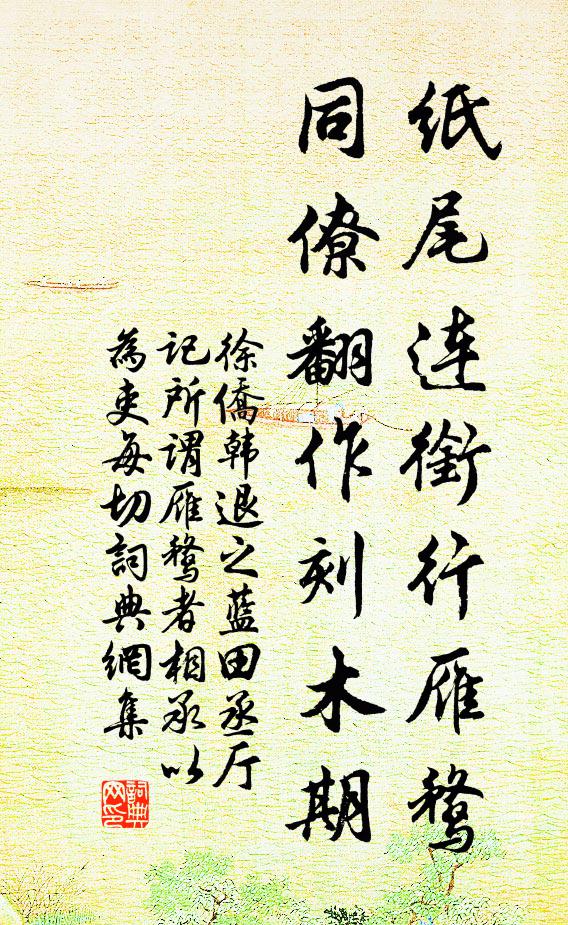 纸尾连衔行雁鹜
同僚翻作刻木期
徐侨韩退之蓝田丞厅
记所谓雁鹜者相承以
為吏每切詞典網集
詞典
网印